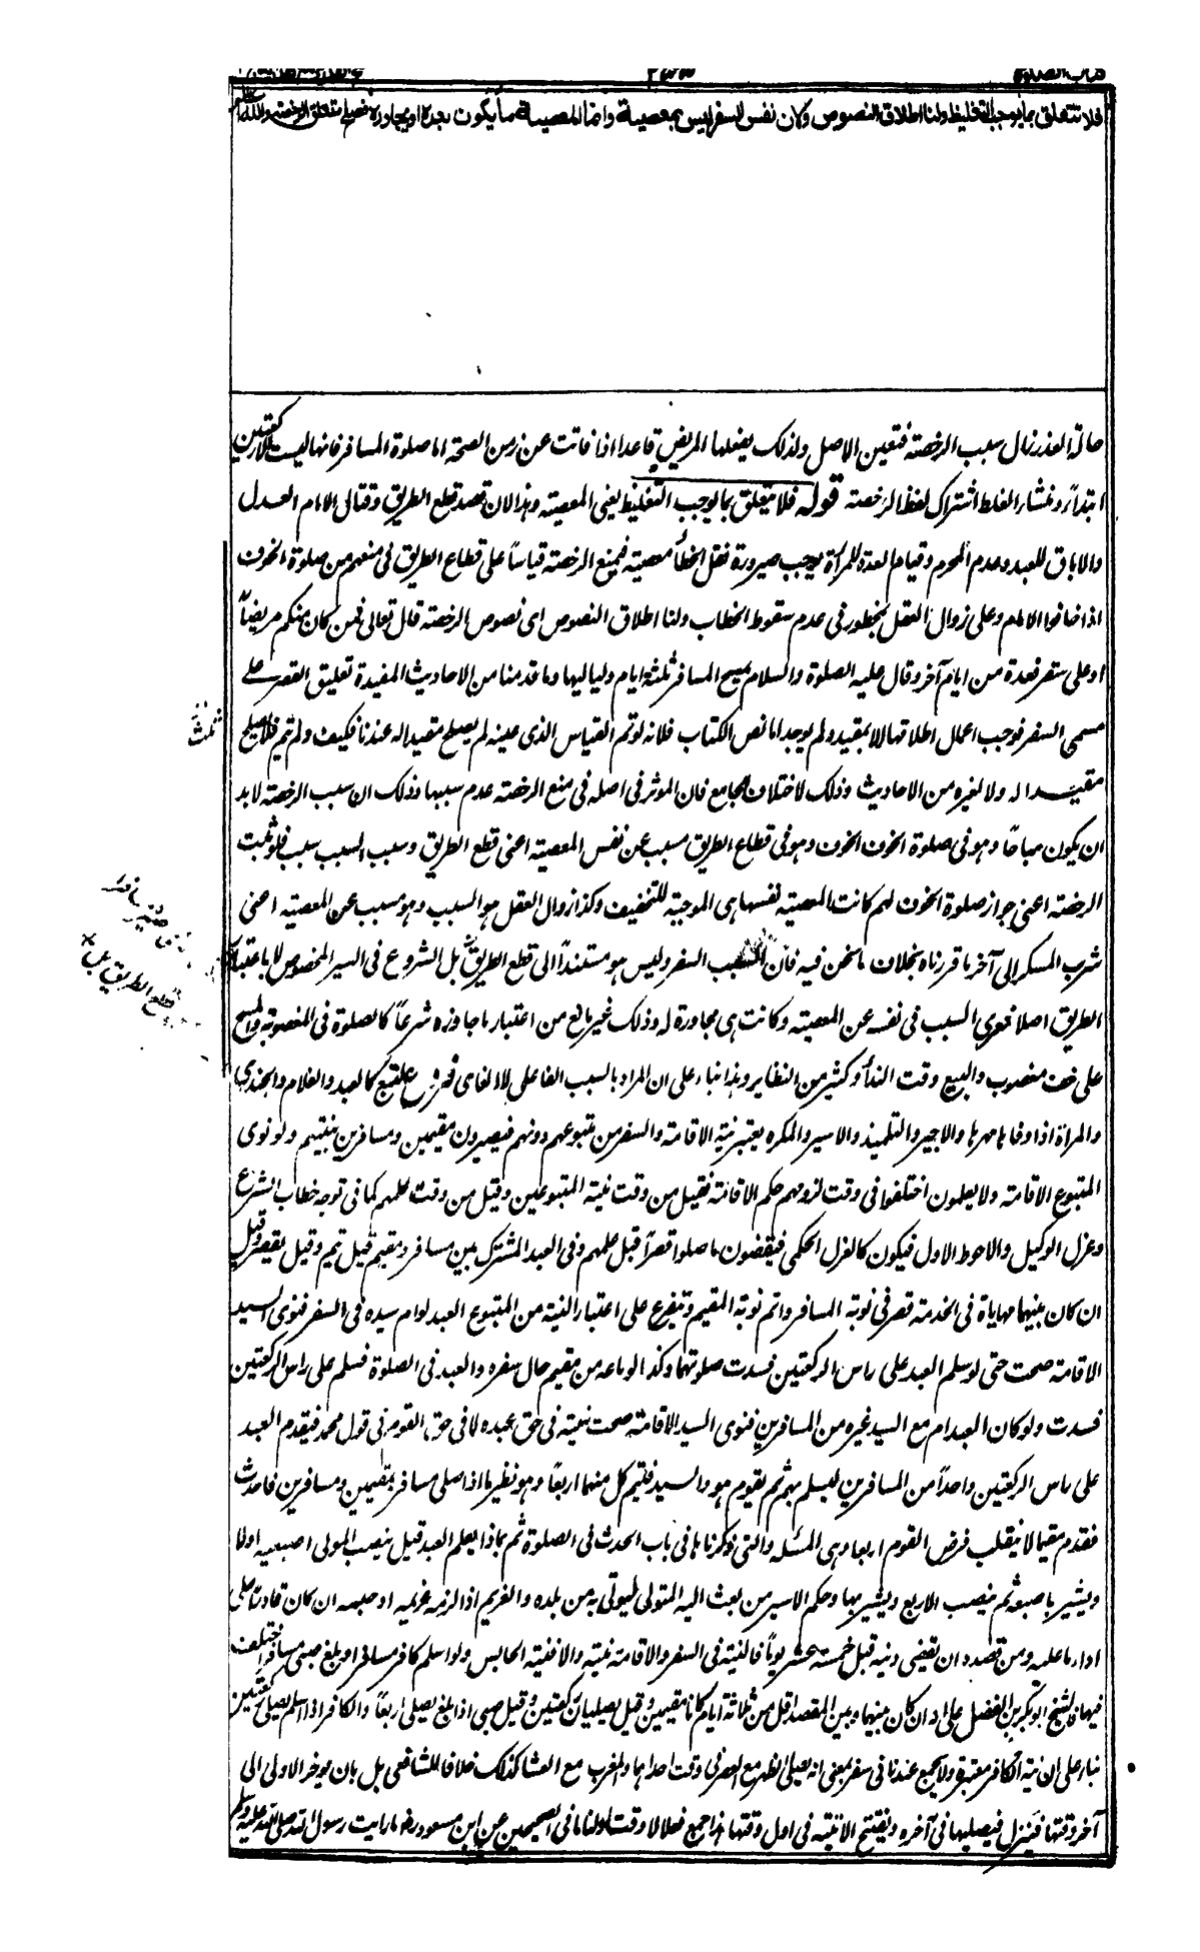 فلا تتعلق بما يوجب التغليظ ولنا اطلاق النصوص ولان نفس السفر ليس بمعصية وانما المعصية ما يكون بعده او يجاوره فصلح متعلق الرخصة والله اعلم
حالة العذر زال سبب الرخصة فتعين الاصل ولذلك يفعلها المريض قاعدا اذا فاتت عن زمن الصحة اما صلوة المسافر فانها ليست الا ركعتين
ابتداء ومنشاء الغلط اشتراك لفظ الرخصة قوله فلا يتعلق بما يوجب التغليظ يعنى المعصية وهذا لان قصد قطع الطريق وقتال الامام العدل
والاباق للعبد وعدم المحرم وقيام العدة للمرأة يوجب صيرورة نقل الخطأ معصية فيمنع الرخصة قياسا على قطاع الطريق فى منعهم من صلوة الخوف
اذا خافوا الامام وعلى زوال العقل بمحظور فى عدم سقوط الخطاب ولنا اطلاق النصوص اى نصوص الرخصة قال تعالى فمن كان منكم مريضاً
او على سفر فعدة من ايام آخر وقال عليه الصلوة والسلام يمسح المسافر ثلثة ايام ولياليها وما قدمنا من الاحاديث المفيدة تعليق القصر على
مسمى السفر فوجب اعمال اطلاقها الا بمقيد ولم يوجد اما نص الكتاب فلانه لو تم القياس الذى عينه لم يصلح مقيدا له عندنا فكيف ولم يتم فلا يصلح
مقيدا له ولا لغيره من الاحاديث وذلك لاختلاف الجامع فان الموثر فى اصله فى منع الرخصة عدم سببها وذلك ان سبب الرخصة لابد
ان يكون مباحا وهو فى صلوة الخوف الخوف وهو فى قطاع الطريق مسبب عن نفس المعصية اعنى قطع الطريق وسبب السبب سبب فلو ثبت
الرخصة اعنى جواز صلوة الخوف لهم كانت المعصية نفسها هى الموجبة للتخفيف وكذا زوال العقل هو السبب وهو مسبب عن المعصية اعنى
شرب المسكر الى آخر ما قررناه بخلاف ما نحن فيه فان السبب السفر وليس هو مستندا الى قطع الطريق بل الشروع فى السير المخصوص لا باعتبار
الطريق اصلا فعرى السبب فى نفسه عن المعصية وكانت هى مجاورة له وذلك غير مانع من اعتبار ما جاوزه شرعاً كالصلوة فى المغصوبة والمسح
على خف مغصوب والبيع وقت النداء وكثير من النظاير وهذا بناء على ان المراد بالسبب الفاعلى لا الغائى فروع التبع كالعبد والغلام والجندى
والمراة اذا وفاها مهرها والاجير والتلميذ والاسير والمكره يعتبر نية الاقامة والسفر من متبوعهم دونهم فيصيرون مقيمين ومسافرين بنيتهم ولو نوى
المتبوع الاقامة ولا يعلمون اختلفوا فى وقت لزومهم حكم الاقامة فقيل من وقت نية المتبوعين وقيل من وقت علمهم كما فى توجه خطاب الشرع
وعزل الوكيل والاحوط الاول فيكون كالعزل الحكمى فيقضون ما صلوا قصرا قبل علمهم وفى العبد المشترك بين مسافر ومقيم قيل يتم وقيل يقصر وقيل
ان كان بينهما مهاياة فى الخدمة قصر فى نوبة المسافر واتم نوبة المقيم ويتفرع على اعتبار النية من المتبوع العبد لو ام سيده فى السفر فنوى السيد
الاقامة صحت حتى لو سلم العبد على راس الركعتين فسدت صلوتهما وكذا لو باعه من مقيم حال سفره والعبد فى الصلوة فسلم على راس الركعتين
فسدت ولو كان العبد ام مع السيد غيره من المسافرين فنوى السيد الاقامة صحت نيته فى حق عبده لا فى حق القوم فى قول محمد فيقدم العبد
على راس الركعتين واحدا من المسافرين ليسلم بهم ثم يقوم هو والسيد فيتم كل منهما اربعا وهو نظير ما اذا صلى مسافر بمقيمين ومسافرين فاحدث
فقدم مقيما لا ينقلب فرض القوم اربعا وهى المسئلة والتى ذكرناها فى باب الحدث فى الصلوة ثم بماذا يعلم العبد قيل ينصب المولى اصبعيه اولا
ويشير باصبعه ثم ينصب الاربع ويشير بها وحكم الاسير من بعث اليه المتولى ليوتى به من بلده والغريم اذا لزمه غريمه او حبسه ان كان قادرا على
اداء ما عليه ومن قصده ان يقضى دينه قبل خمسة عشر يوماً فالنية فى السفر والاقامة نيته والا فنية الحابس ولو اسلم كافر مسافر او بلغ صبى مسافرا اختلف
فيها فالشيخ ابو بكر بن الفضل على انه ان كان بينهما وبين المقصد اقل من ثلاثة ايام كانا مقيمين وقيل يصليان ركعتين وقيل صبى اذا بلغ يصلى اربعا والكافر اذا اسلم يصلى ركعتين
بناء على ان نية الكافر معتبرة ولا يجمع عندنا فى سفر بمعنى انه يصلى الظهر مع العصر فى وقت احداهما والمغرب مع العشا كذلك خلافا للشافعى بل بان يوخر الاولى الى
آخر وقتها فينزل فيصليها فى آخره ويفتتح الاتية فى اول وقتها هذا جمع فعلا لا وقتا ولنا ما فى الصحيحين عن ابن مسعود رضـ ما رايت رسول الله صلى الله عليه وسلم